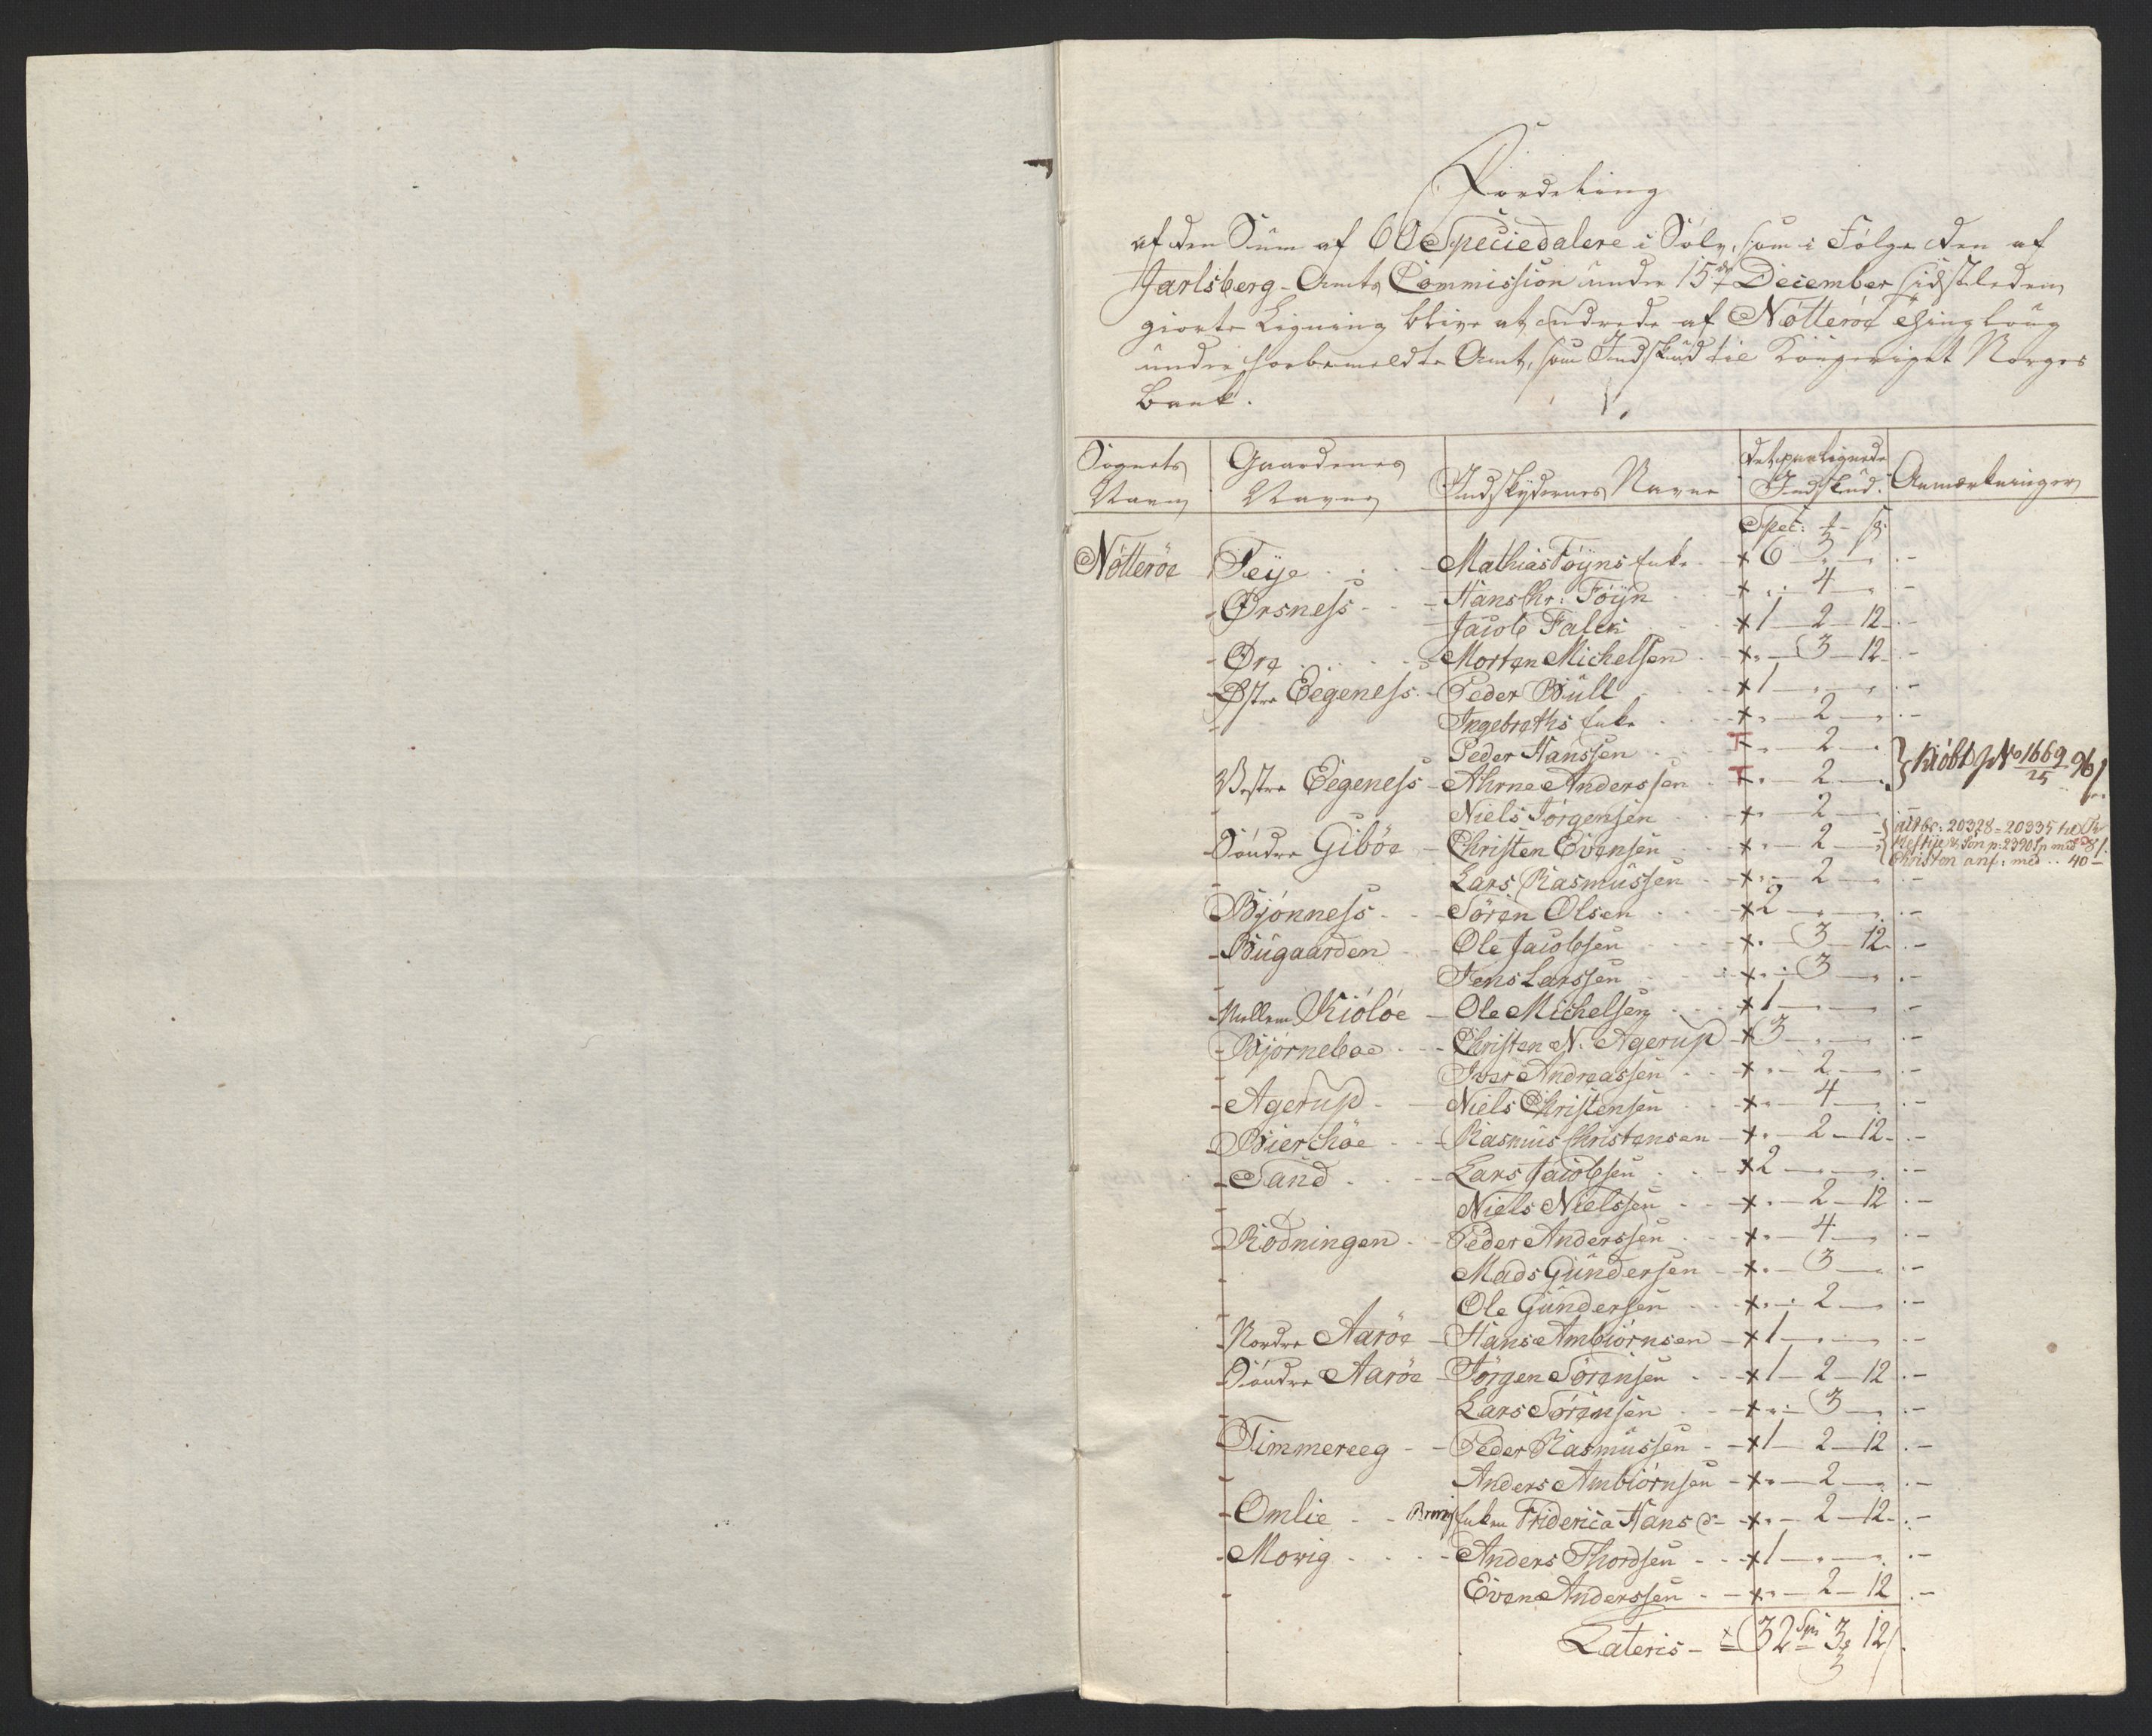 Fordeling
af den Sum af 60 Speciedalere i Sølv, som i Følge den af
Jarlsberg-Amts Commission under 15de December sidstleden
giorte Ligning blive at udrede af Nøtterøe Thinglaug
under forbemeldte Amt, som Indskud til Kongeriget Norges
Bank.
Sognets Navn | Gaardenes Navne | Indskydernes Navne | Det paalignede Indskud. | Anmærkninger
Spec: ß
Nøtterøe Teye Mathias Föyns Enke x 6 " "
- Ørsness - Hans Chr: Föyn x " 4 "
Jacob Falck x 1 2 12
- Øre - Morten Michelsen x " 3 12
- Østre Eegeness - Peder Büll x 1 " "
- Ingebreths Enke x " 2 "
Peder Hanssen x " 2 "
Vestre Eegeness - Ahrne Anderssen x " 2 " } Kiöbt No 1669
- Niels Jørgensen x " 2 "
Söndre Gibøe - Christen Evensen x " 2 " 20328 - 20335
- Lars Rasmussen x " 2 " Christen anf: med 40 -
Bjönness - Sören Olsen x 2 " "
- Bugaarden - Ole Jacobsen x " 3 12
- Jens Larssen x " 3 "
- Mellem Kiölöe - Ole Michelsen x 1 " "
- Bjørneboe - Christen N. Agerup x 3 " "
- Iver Andreassen x " 2 "
- Agerup - Niels Christensen x " 4 "
- Bierchöe - Rasmus Christensen x " 2 12
- Sand - Lars Jacobsen x 2 " "
- Niels Nielssen x " 2 12
- Rödningen - Peder Anderssen x " 4 "
- Mads Gundersen x " 3 "
- Ole Gundersen x " 2 "
- Nordre Aaröe - Hans Ambiörnsen x 1 " "
- Söndre Aaröe - Jörgen Sörensen x 1 2 12
- Lars Sörensen x " 3 "
- Timmereeg - Peder Rasmussen x 1 2 12
- Anders Ambiörnsen x " 2 "
- Omlie - Enken Friderica Hans D- x " 2 12
- Movig - Anders Thordsen x 1 " "
- Even Anderssen x " 2 12
Lateris - 32 Spe 3 12
3